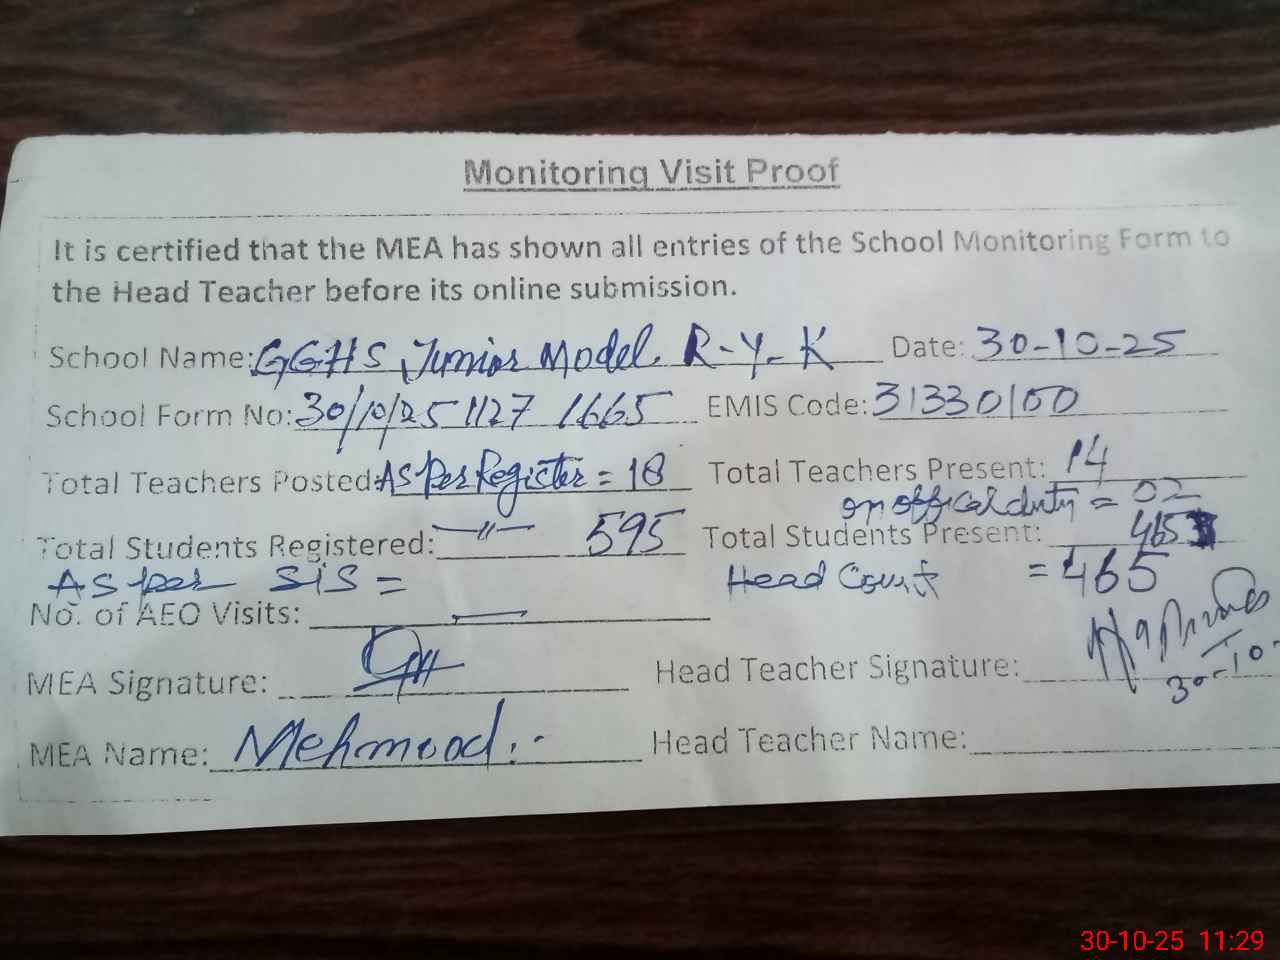 Monitoring Visit Proof
It is certified that the MEA has shown all entries of the School Monitoring Form to
the Head Teacher before its online submission.
School Name: GGHS Junior Model R-Y-K Date: 30-10-25
School Form No: 30/10/25 1127 1665 EMIS Code: 31330100
Total Teachers Posted: As Per Register = 18 Total Teachers Present: 14
on offical duty = 02
Total Students Registered: -〃- 595 Total Students Present: 465
As per SIS = Head Count = 465
No. of AEO Visits: —
MEA Signature: Head Teacher Signature:
30-10-
MEA Name: Mehmood Head Teacher Name:
30-10-25 11:29